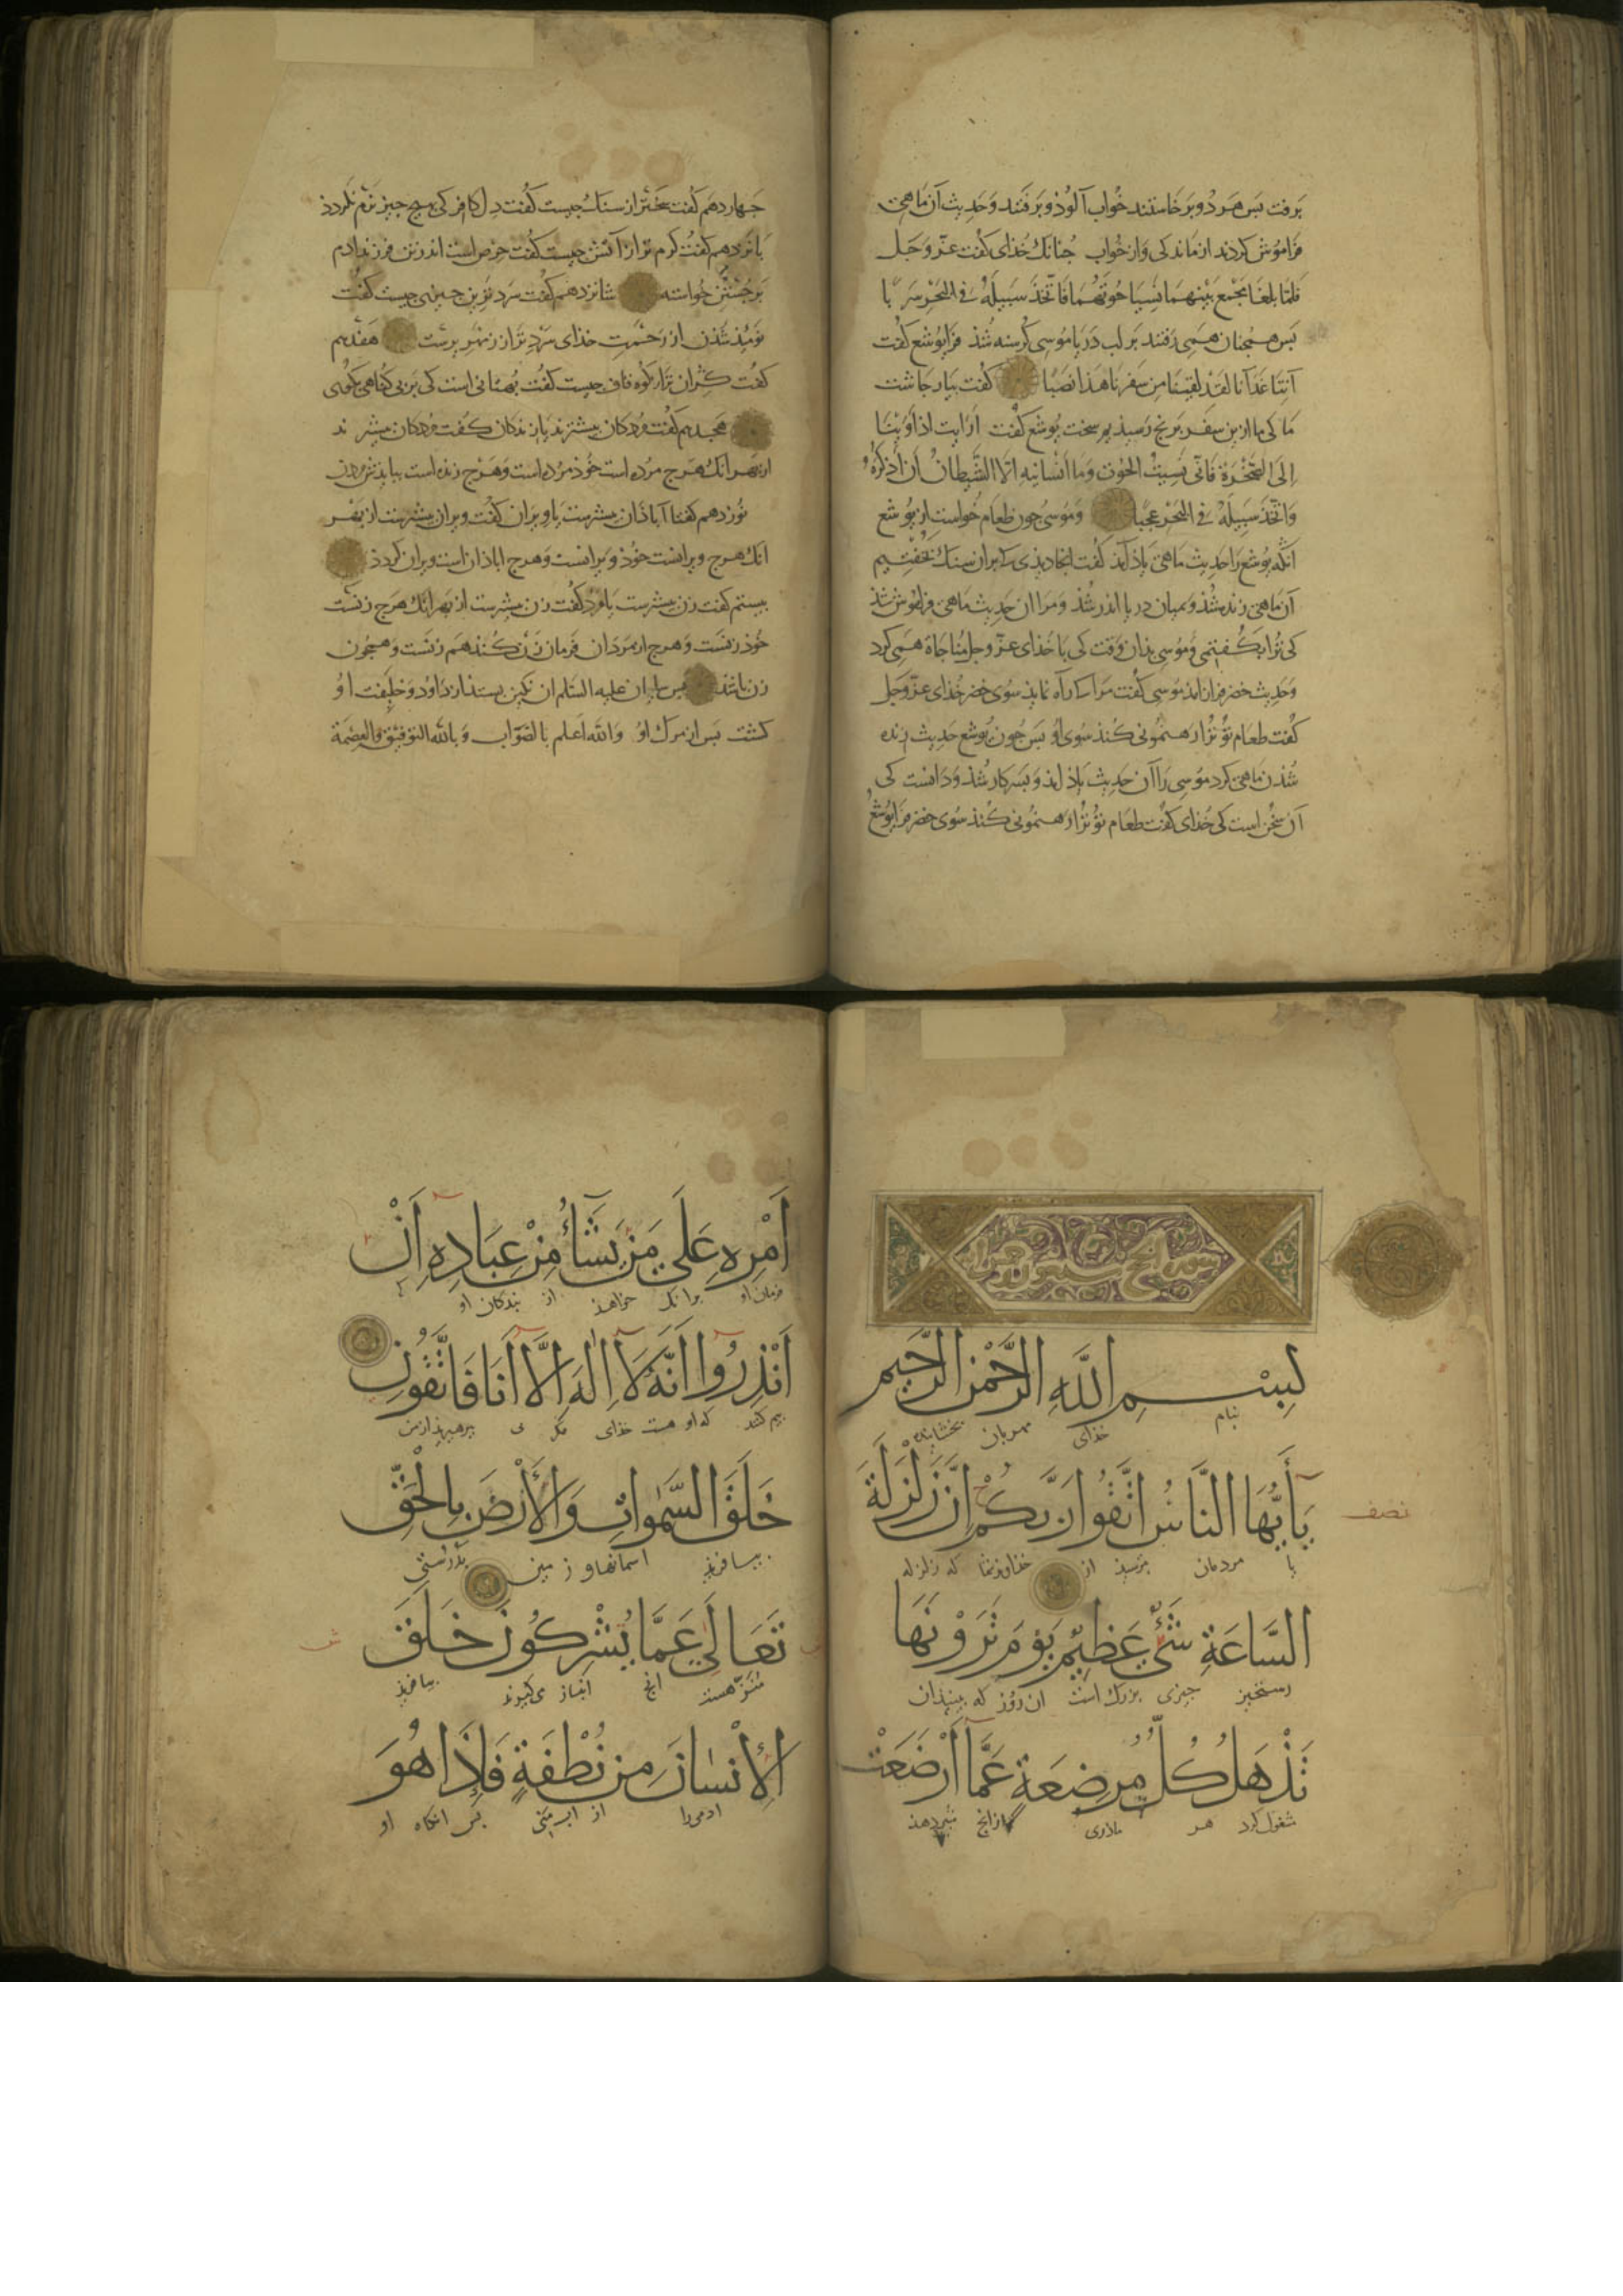 برفت بس هر دو برخاستند خواب آلوذ و برفتند و حدیث آن ماهی
فراموش کردند از ماندکی و از خواب جنانک خذای کفت عزّ و جل
فَلَمَّا بَلَغَا مَجْمَعَ بَيْنِهِمَا نَسِيَا حُوتَهُمَا فَاتَّخَذَ سَبِيلَهُ فِي الْبَحْرِ سَرَبًا
بس همجنان همی رفتند بر لب دریا موسی کرسنه شذ فرا یوشع کفت
آتِنَا غَدَآنَا لَقَدْ لَقِينَا مِن سَفَرِنَا هَذَا نَصَبًا کفت بیار جاشت
ما کی ما ازین سفر برنج رسیذیم سخت یوشع کفت اَرَايت اِذ اَوَيْنَا
اِلَى الصَّخْرَة فَاِنِّي نَسِيتُ الْحُوت وَمَا اَنْسَانِيهِ اِلَّا الشَّيْطَانُ اَن اَذْكُرَهُ
وَاتَّخَذَ سَبِيلَهُ فِي الْبَحْرِ عَجَبًا و موسی جون طعام خواست از یوشع
انکه یوشع را حدیث ماهی یاذ آمذ کفت انجا دیذی کی ما بران سنک بخفتیم
آن ماهی زنده شذ و بمیان دریا اندر شذ و مرا ان حدیث ماهی فراموش شذ
کی ترا بکفتمی و موسی بذان وقت کی با خذای عزّ و جل مناجاة همی کرد
و حدیث خضر فران امذ موسی کفت مرا که راه نمایذ سوی خضر خذای عزّ و جل
کفت طعام تو ترا رهنمونی کنذ سوی او بس جون یوشع حدیث زنده
شذن ماهی کرد موسی را آن حدیث یاذ امذ و بسر کار شذ و دانست کی
آن سخن است کی خذای کفت طعام تو ترا رهنمونی کنذ سوی خضر فرا یوشع
جهاردهم کفت سختر از سنک جیست کفت دل کافر کی بهیج جیز نرم نکردذ
بانزدهم کفت کرم تر از آتش جیست کفت حرص است اندر تن فرزند ادم
بر جستن خواسته شانزدهم کفت سرد ترین جیزی جیست کفت
نومیذ شذن از رحمت خذای سردتر از زمهریرست هفدهم
کفت کران تر از کوه قاف جیست کفت بهتانی است کی بر بی کناهی بکوی
هجدهم کفت مردکان بیشترند یا زندکان کفت مردکان بیشترند
از بهر انک هرج مرده است خوذ مرده است و هرج زنده است ببایذش مردن
نوزدهم کفتا آباذان بیشترست یا ویران کفت ویران بیشترست از بهر
انک هرج ویرانست خوذ ویرانست و هرج اباذان است ویران کردذ
بیستم کفت زن بیشترست یا مرد کفت زن بیشترست از بهر انک هرج زنست
خوذ زنست و هرج از مردان فرمان زن کنند هم زنست و همجون
زن باشذ بس سلیمان علیه السلام ان نکین بستذ از داود و خلیفت او
کشت بس از مرک او والله اعلم بالصواب وبالله التوفیق والعصمة
بِسْمِ اللَّهِ الرَّحْمٰنِ الرَّحِيمِ
بنام خذای مهربان بخشاینده
يَا أَيُّهَا النَّاسُ اتَّقُوا رَبَّكُمْ إِنَّ زَلْزَلَةَ
نصف
یا مردمان بترسیذ از خذاوندتان که زلزله
السَّاعَةِ شَيْءٌ عَظِيمٌ يَوْمَ تَرَوْنَهَا
رستخیز جیزی بزرک است ان روز که ببینذان
تَذْهَلُ كُلُّ مُرْضِعَةٍ عَمَّا أَرْضَعَتْ
مشغول کرد هر مادری از انج شیر دهذ
أَمْرِهِ عَلَى مَنْ يَشَاءُ مِنْ عِبَادِهِ أَنْ
فرمان او برانک خواهذ از بندکان او
أَنْذِرُوا أَنَّهُ لَا إِلٰهَ إِلَّا أَنَا فَاتَّقُونِ
بیم کنید که او هست خذای مکر من ببرهیزیذ از من
خَلَقَ السَّمٰوَاتِ وَالْأَرْضَ بِالْحَقِّ
بیافریذ اسمانها و زمین براستی
تَعَالَى عَمَّا يُشْرِكُونَ خَلَقَ
منزه هست انج انباز می کیرند بیافریذ
الْإِنْسَانَ مِنْ نُطْفَةٍ فَإِذَا هُوَ
ادمی را از اب منی بس انکاه او